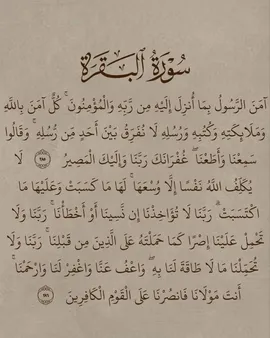 سُورَةُ البَقَرَة
آمَنَ الرَّسُولُ بِمَا أُنزِلَ إِلَيْهِ مِن رَّبِّهِ وَالْمُؤْمِنُونَ ۚ كُلٌّ آمَنَ بِاللَّهِ
وَمَلَائِكَتِهِ وَكُتُبِهِ وَرُسُلِهِ لَا نُفَرِّقُ بَيْنَ أَحَدٍ مِّن رُّسُلِهِ ۚ وَقَالُوا
سَمِعْنَا وَأَطَعْنَا ۖ غُفْرَانَكَ رَبَّنَا وَإِلَيْكَ الْمَصِيرُ ٢٨٥ لَا
يُكَلِّفُ اللَّهُ نَفْسًا إِلَّا وُسْعَهَا ۚ لَهَا مَا كَسَبَتْ وَعَلَيْهَا مَا
اكْتَسَبَتْ ۗ رَبَّنَا لَا تُؤَاخِذْنَا إِن نَّسِينَا أَوْ أَخْطَأْنَا ۚ رَبَّنَا وَلَا
تَحْمِلْ عَلَيْنَا إِصْرًا كَمَا حَمَلْتَهُ عَلَى الَّذِينَ مِن قَبْلِنَا ۚ رَبَّنَا وَلَا
تُحَمِّلْنَا مَا لَا طَاقَةَ لَنَا بِهِ ۖ وَاعْفُ عَنَّا وَاغْفِرْ لَنَا وَارْحَمْنَا ۚ
أَنتَ مَوْلَانَا فَانصُرْنَا عَلَى الْقَوْمِ الْكَافِرِينَ ٢٨٦